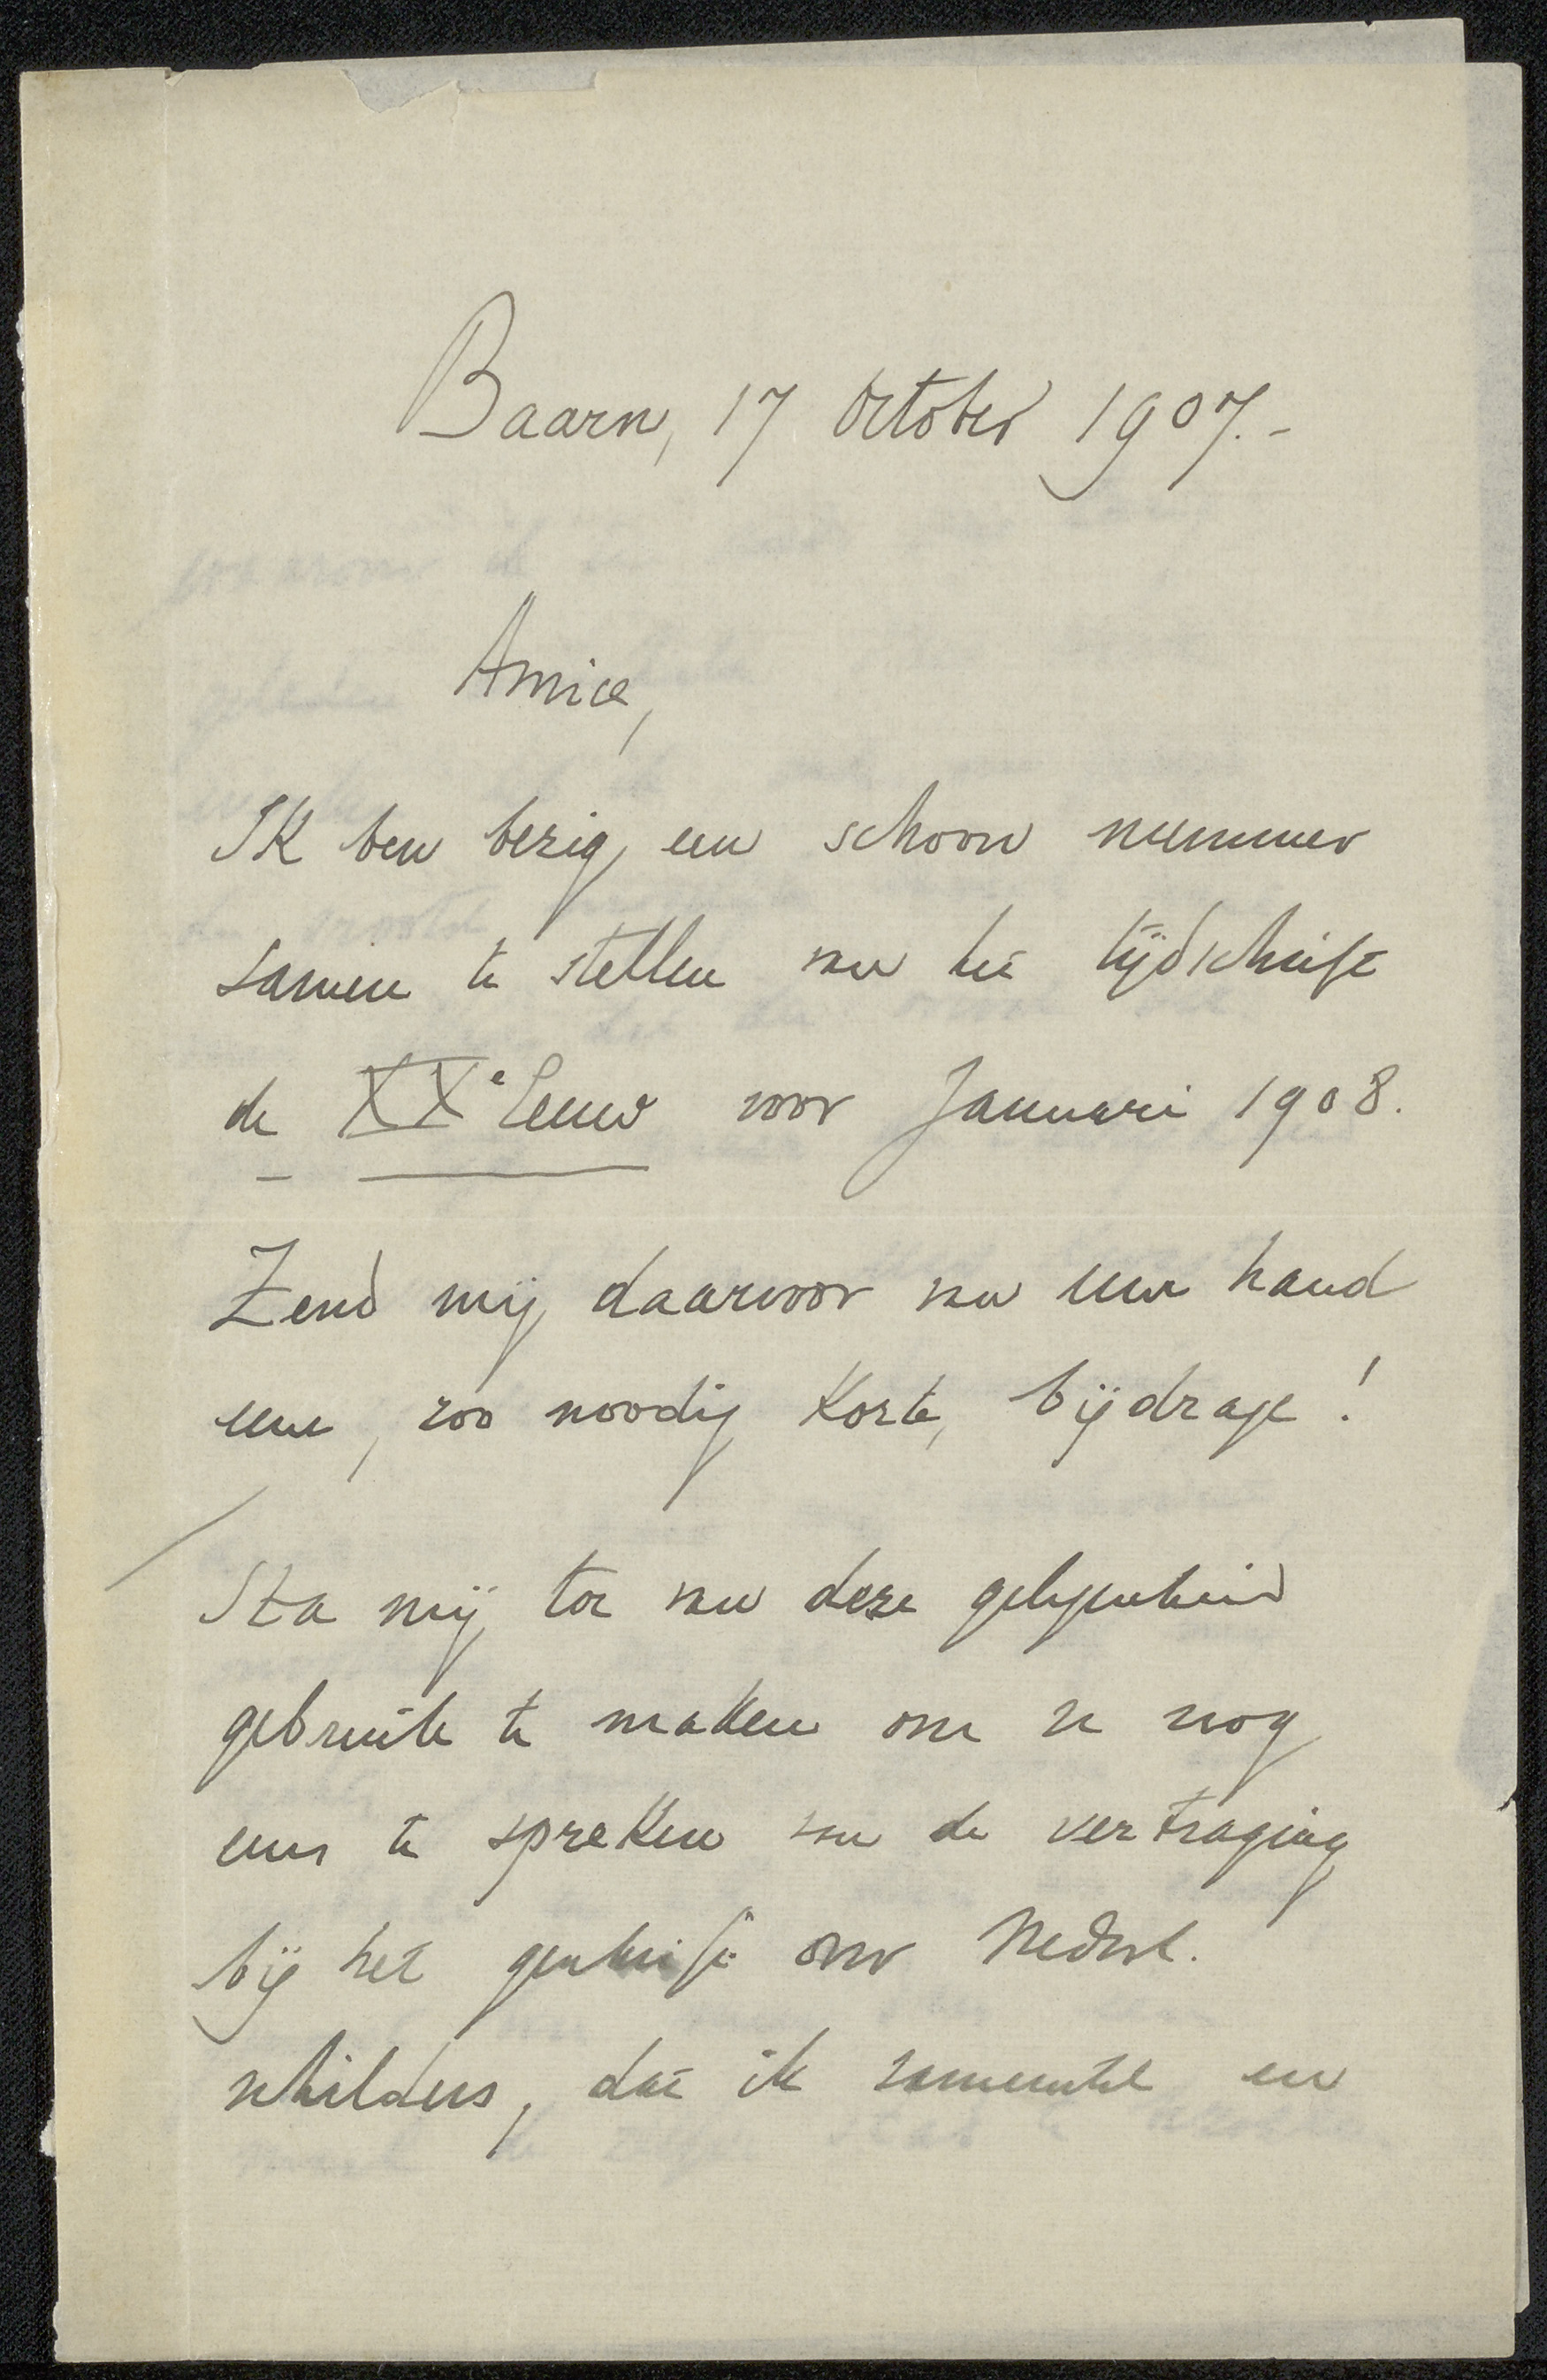 Baarn, 17 October 1907.-
Amice,
Ik ben bezig een schoon nummer
samen te stellen van het tijdschrift
de XXe Eeuw voor Januari 1908.
Zend mij daarvoor van uw hand
een, zoo noodig korte, bijdrage!
Sta mij toe van deze gelegenheid
gebruik te maken om u nog
eens te spreken van de vertraging
bij het geschrift over Nederl.
schilders, dat ik samenstel en